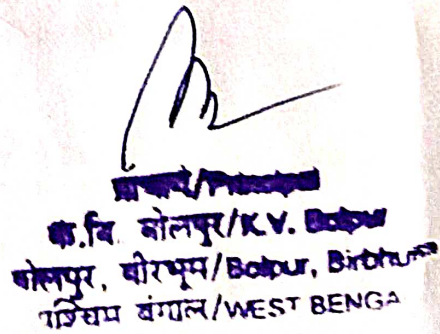 प्राचार्य/Principal
के.वि. बोलपुर/K.V. Bolpur
बोलपुर, बीरभूम/Bolpur, Birbhum
पश्चिम बंगाल/WEST BENGA